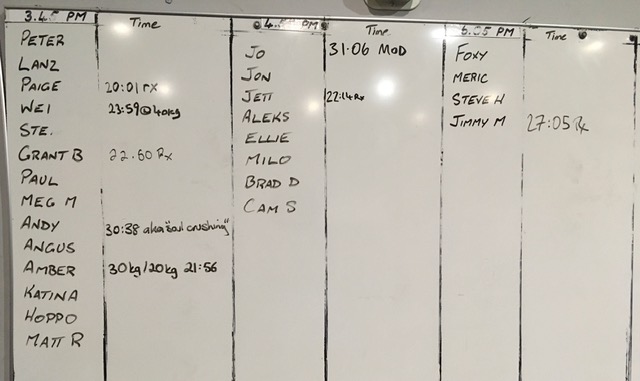 3.45 PM Time
PETER
LANZ
PAIGE 20:01 rx
WEI 23:59@40kg
STE.
GRANT B 22.50 Rx
PAUL
MEG M
ANDY 30:38 aka "soul crushing"
ANGUS
AMBER 30kg/20kg 21:56
KATINA
HOPPO
MATT R
PM Time
JO 31.06 MOD
JON
JETT 22:14 Rx
ALEKS
ELLIE
MILO
BRAD D
CAM S
PM Time
FOXY
MERIC
STEVE H
JIMMY M 27:05 Rx